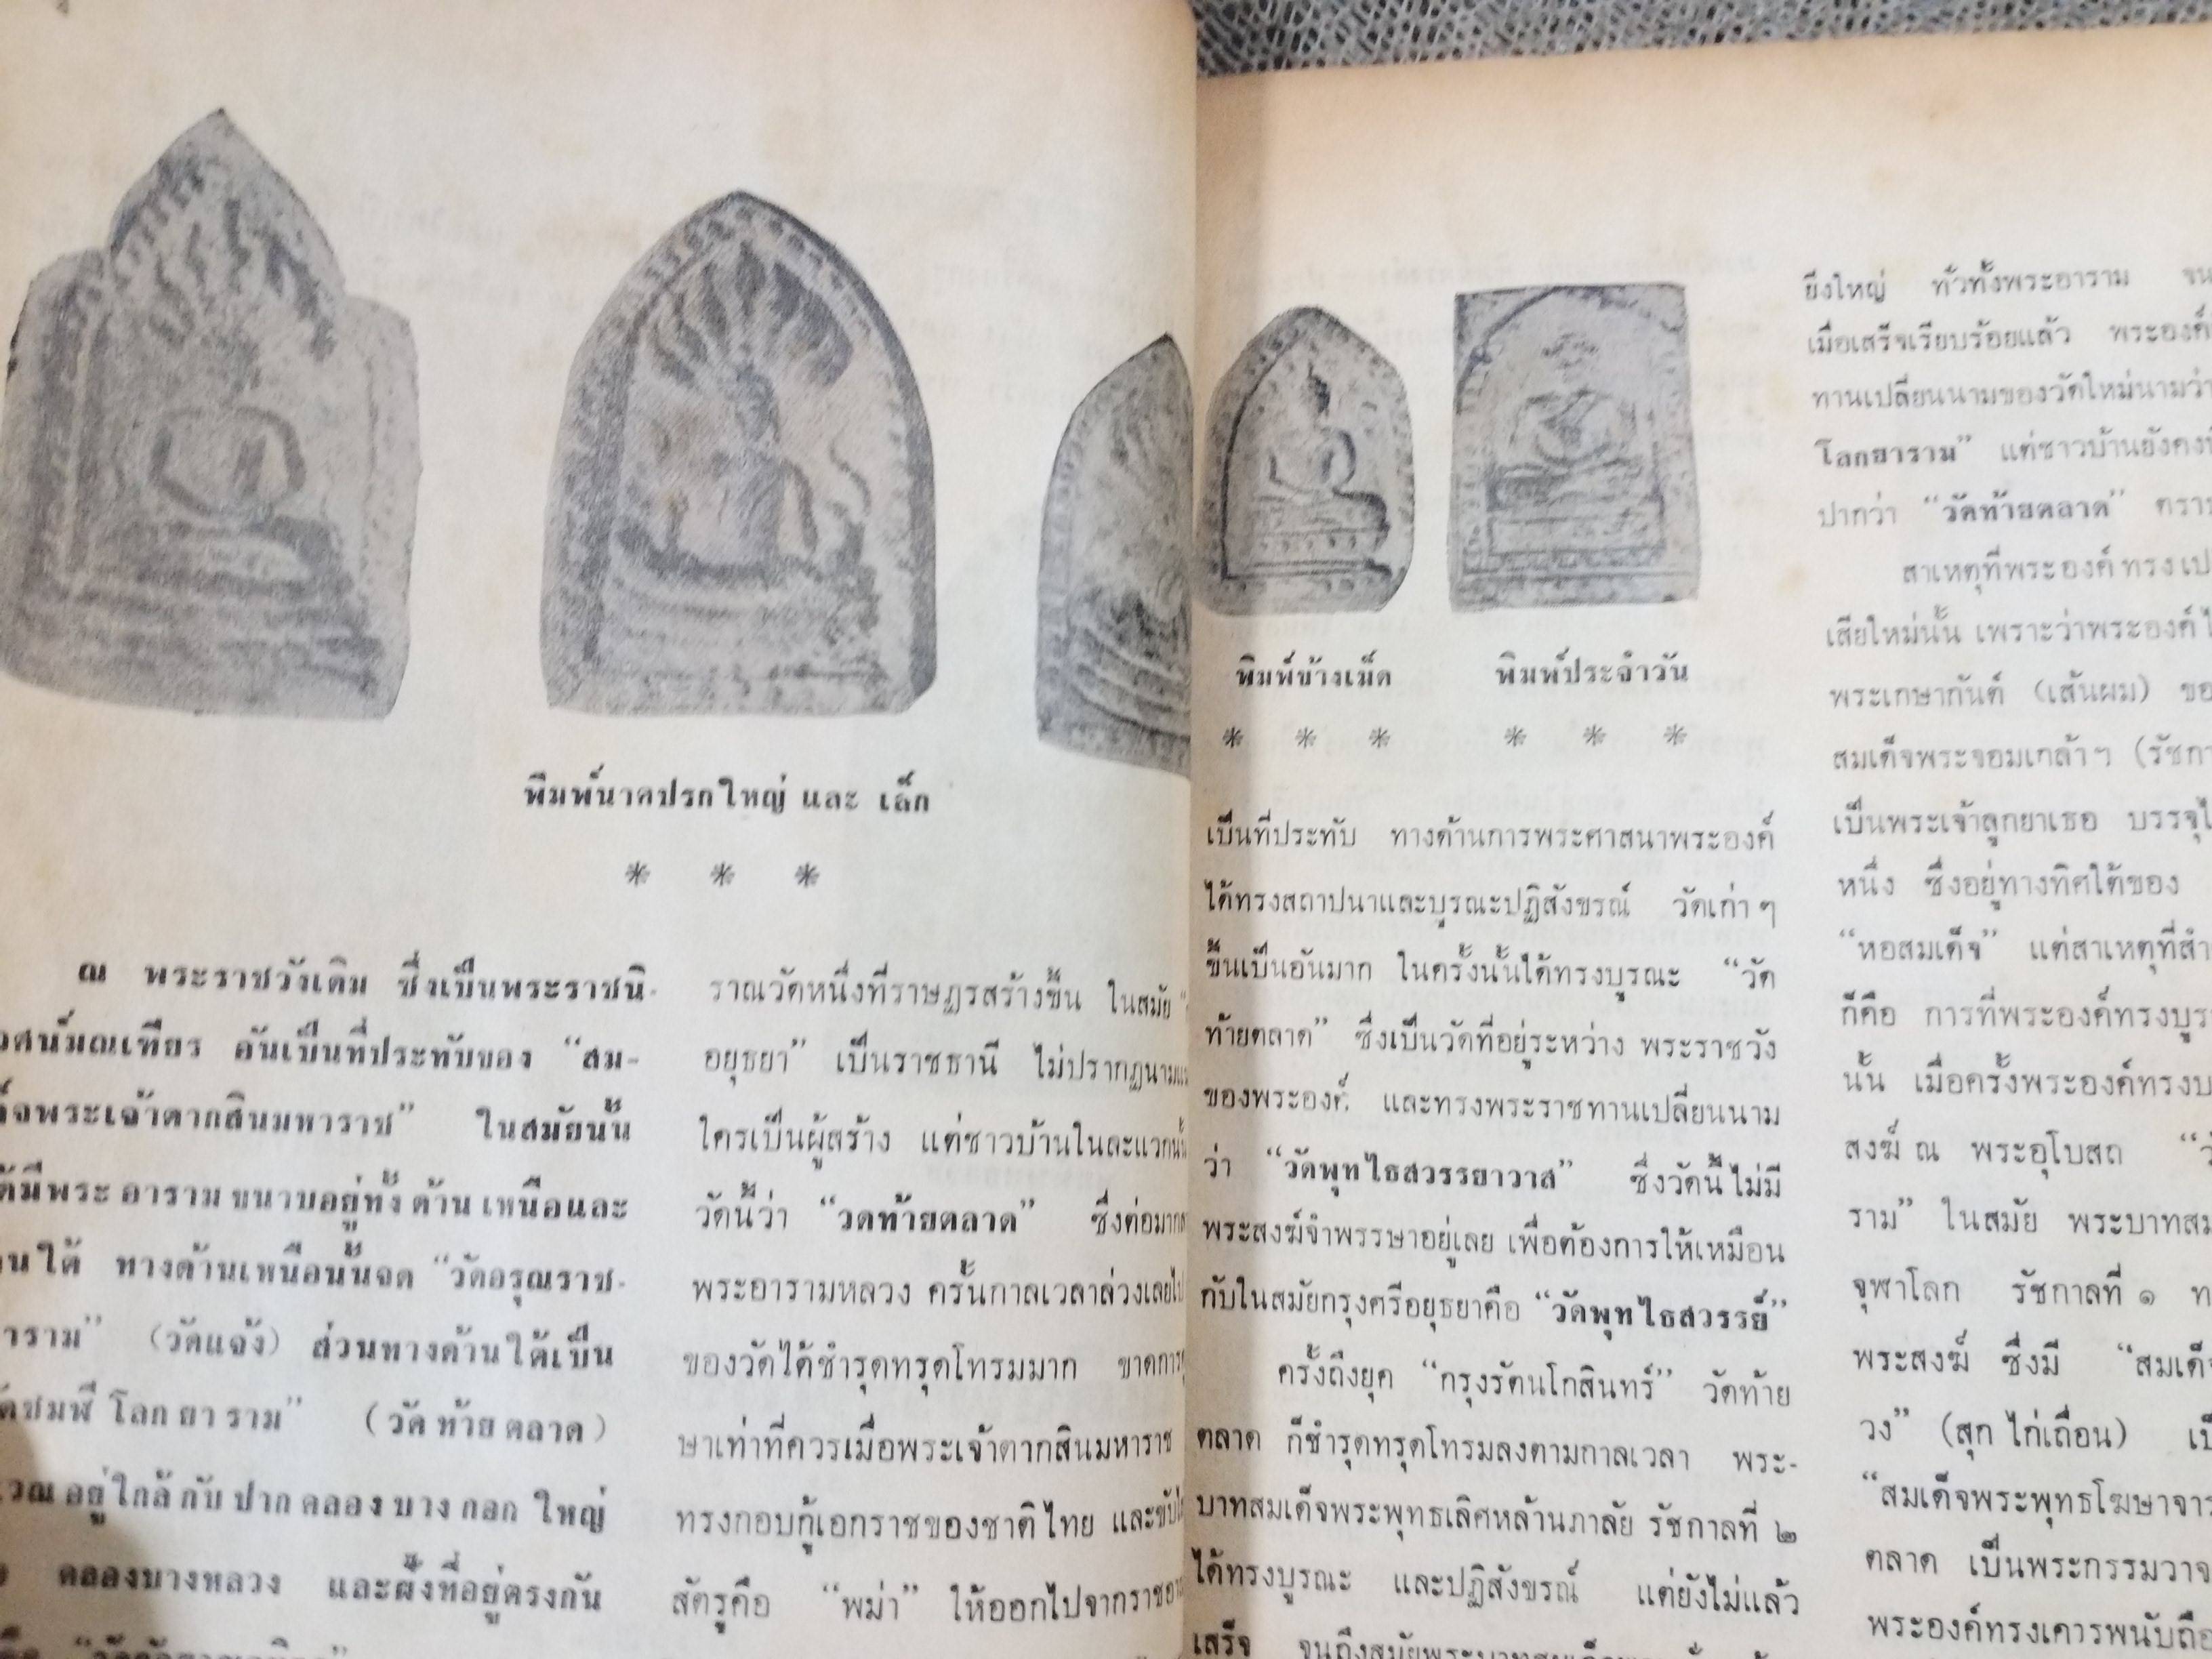 พิมพ์นาคปรกใหญ่ และ เล็ก
* * *
ณ พระราชวังเดิม ซึ่งเป็นพระราชนิ-
วศน์มณเฑียร อันเป็นที่ประทับของ “สม-
พระเจ้าตากสินมหาราช” ในสมัยนั้น
มีพระอารามขนาบอยู่ทั้งด้านเหนือและ
ใต้ ทางด้านเหนือนั้นจด “วัดอรุณราช-
าราม” (วัดแจ้ง) ส่วนทางด้านใต้เป็น
โลกยาราม” (วัดท้ายตลาด)
อยู่ใกล้กับปากคลองบางกอกใหญ่
คลองบางหลวง และฝั่งที่อยู่ตรงกัน
ราณวัดหนึ่งที่ราษฎรสร้างขึ้น ในสมัย
อยุธยา” เป็นราชธานี ไม่ปรากฏนาม
ใครเป็นผู้สร้าง แต่ชาวบ้านในละแวกนั้น
วัดนี้ว่า “วดท้ายตลาด” ซึ่งต่อมา
พระอารามหลวง ครั้นกาลเวลาล่วงเลยไป
ของวัดได้ชำรุดทรุดโทรมมาก ขาดการ
ษาเท่าที่ควรเมื่อพระเจ้าตากสินมหาราช
ทรงกอบกู้เอกราชของชาติไทย และขับ
สัตรูคือ “พม่า” ให้ออกไปจากราช
พิมพ์ข้างเม็ด พิมพ์ประจำวัน
* * * * * *
เป็นที่ประทับ ทางด้านการพระศาสนาพระองค์
ได้ทรงสถาปนาและบูรณะปฏิสังขรณ์ วัดเก่าๆ
ขึ้นเป็นอันมาก ในครั้งนั้นได้ทรงบูรณะ “วัด
ท้ายตลาด” ซึ่งเป็นวัดที่อยู่ระหว่าง พระราชวัง
ของพระองค์ และทรงพระราชทานเปลี่ยนนาม
ว่า “วัดพุทไธสวรรยาวาส” ซึ่งวัดนี้ไม่มี
พระสงฆ์จำพรรษาอยู่เลย เพื่อต้องการให้เหมือน
กับในสมัยกรุงศรีอยุธยาคือ “วัดพุทไธสวรรย์”
ครั้งถึงยุค “กรุงรัตนโกสินทร์” วัดท้าย
ตลาด ก็ชำรุดทรุดโทรมลงตามกาลเวลา พระ-
บาทสมเด็จพระพุทธเลิศหล้านภาลัย รัชกาลที่ ๒
ได้ทรงบูรณะ และปฏิสังขรณ์ แต่ยังไม่แล้ว
เสร็จ
ยิ่งใหญ่ ทั่วทั้งพระอาราม จน
เมื่อเสร็จเรียบร้อยแล้ว พระองค์
ทานเปลี่ยนนามของวัดใหม่นามว่า
โลกยาราม” แต่ชาวบ้านยังคง
ปากว่า “วัดท้ายตลาด”
สาเหตุที่พระองค์ทรง
เสียใหม่นั้น เพราะว่าพระองค์
พระเกษากันต์ (เส้นผม)
สมเด็จพระจอมเกล้าฯ
เป็นพระเจ้าลูกยาเธอ บรรจุ
หนึ่ง ซึ่งอยู่ทางทิศใต้ของ
“หอสมเด็จ” แต่สาเหตุที่
ก็คือ การที่พระองค์ทรง
นั้น เมื่อครั้งพระองค์ทรง
สงฆ์ ณ พระอุโบสถ
ราม” ในสมัย พระบาท
จุฬาโลก รัชกาลที่ ๑
พระสงฆ์ ซึ่งมี
วง” (สุก ไก่เถื่อน)
“สมเด็จพระพุทธโฆษา
ตลาด เป็นพระกรรมวา
พระองค์ทรงเคารพนับถือ